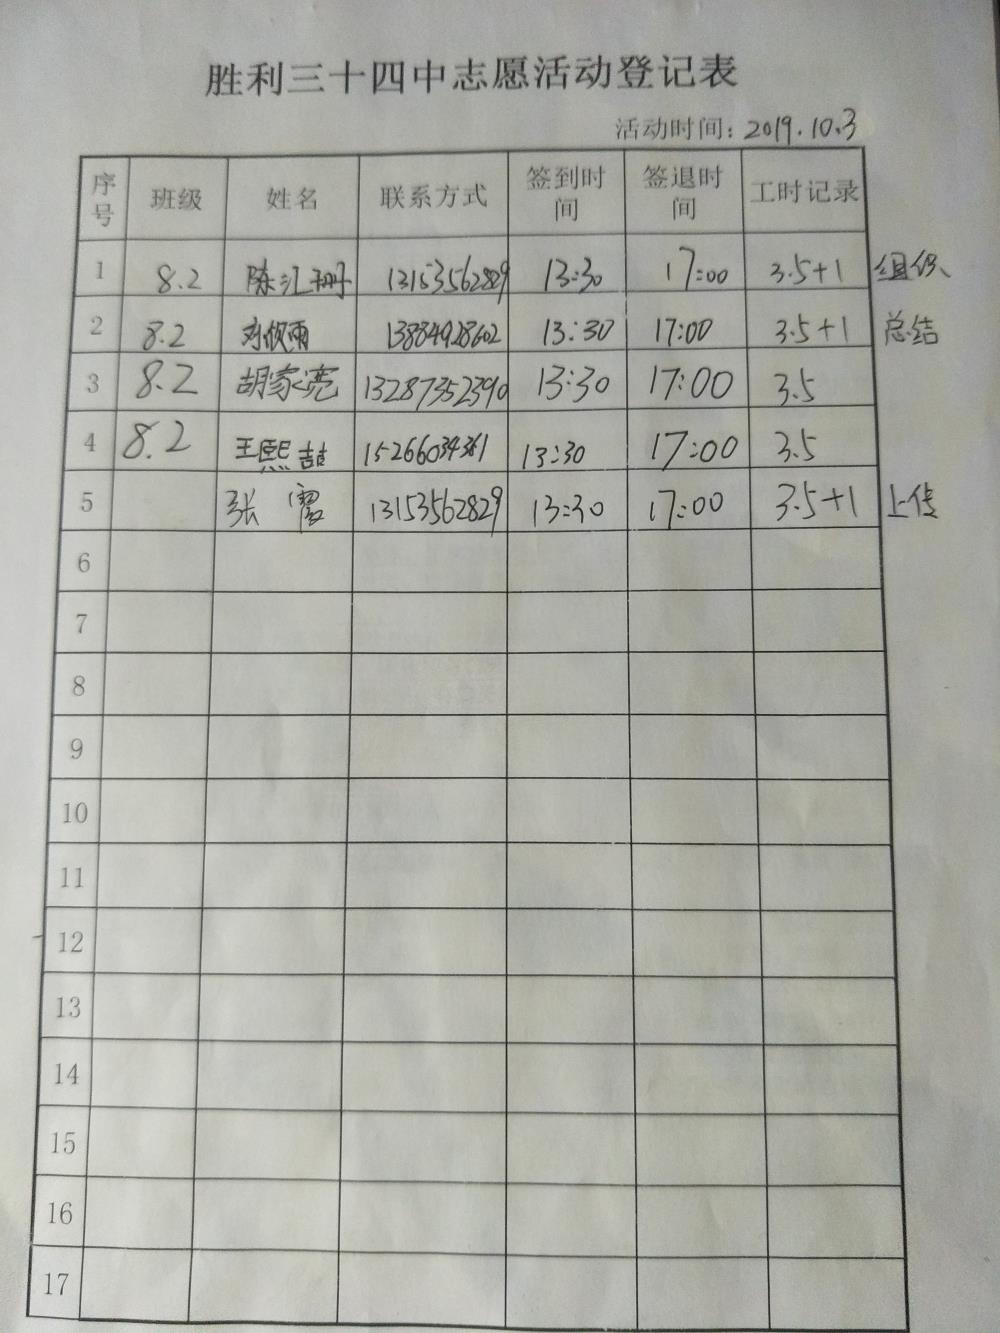 胜利三十四中志愿活动登记表
活动时间：2019.10.3
序号 班级 姓名 联系方式 签到时间 签退时间 工时记录
1 8.2 陈汇珊 13153562829 13:30 17:00 3.5+1 组织
2 8.2 雨 13884928602 13:30 17:00 3.5+1 总结
3 8.2 胡家亮 13287352390 13:30 17:00 3.5
4 8.2 王熙喆 15266034361 13:30 17:00 3.5
5 张霞 13153562829 13:30 17:00 3.5+1 上传
6
7
8
9
10
11
12
13
14
15
16
17